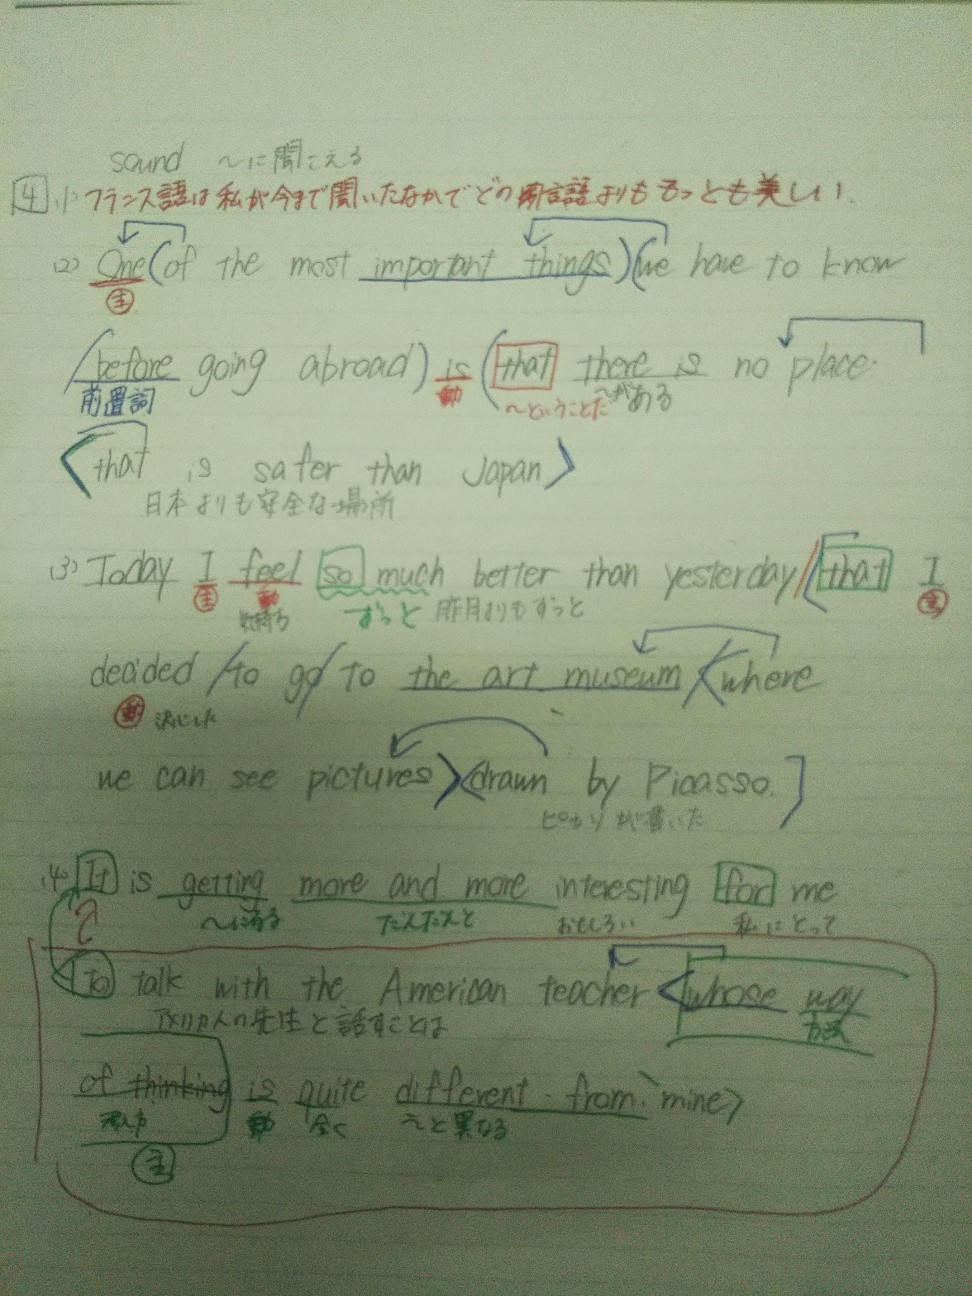 sound 〜に聞こえる
4 (1) フランス語は私が今まで聞いたなかでどの言語よりももっとも美しい.
(2) One (of the most important things) (we have to know
主
(before going abroad) is (that there is no place
前置詞 動 〜ということだ 〜がある
<that is safer than Japan>
日本よりも安全な場所
(3) Today I feel so much better than yesterday / (that I
主 動 気持ち ずっと 昨日よりもずっと 主
decided / to go / to the art museum <where
動 決心した
we can see pictures> <drawn by Picasso.]
ピカソが書いた
(4) It is getting more and more interesting for me
〜になる だんだんと おもしろい 私にとって
to talk with the American teacher <whose way
アメリカ人の先生と話すことは 方法
of thinking is quite different from mine>
動 全く 〜と異なる
主